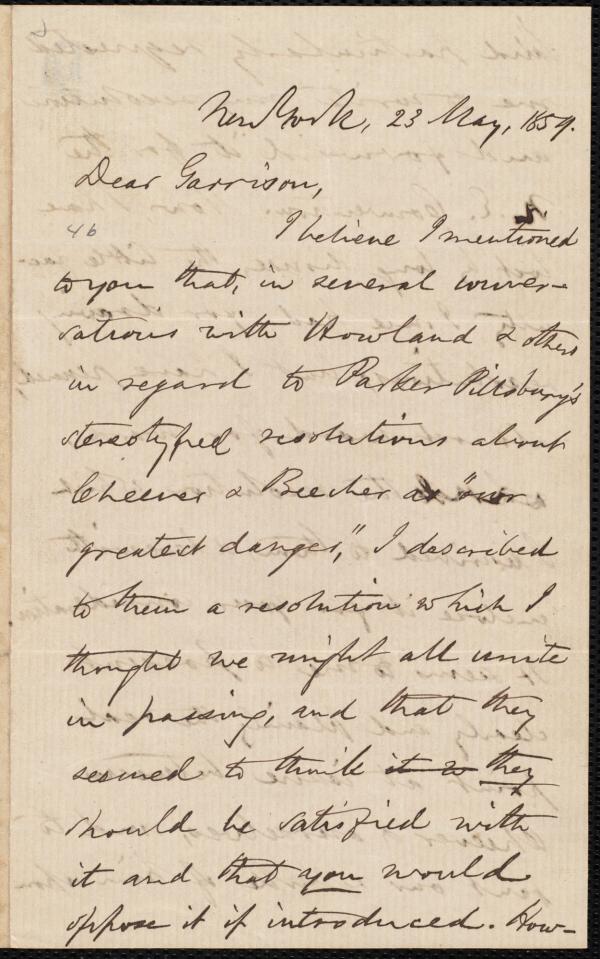 New York, 23 May, 1859.
Dear Garrison,
46
I believe I mentioned
to you that, in several conver-
sations with Howland & others
in regard to Parker Pillsbury's
stereotyped resolutions about
Cheever & Beecher as "our
greatest danger," I described
to them a resolution which I
thought we might all unite
in passing, and that they
seemed to think it w they
should be satisfied with
it and that you would
oppose it if introduced. How-